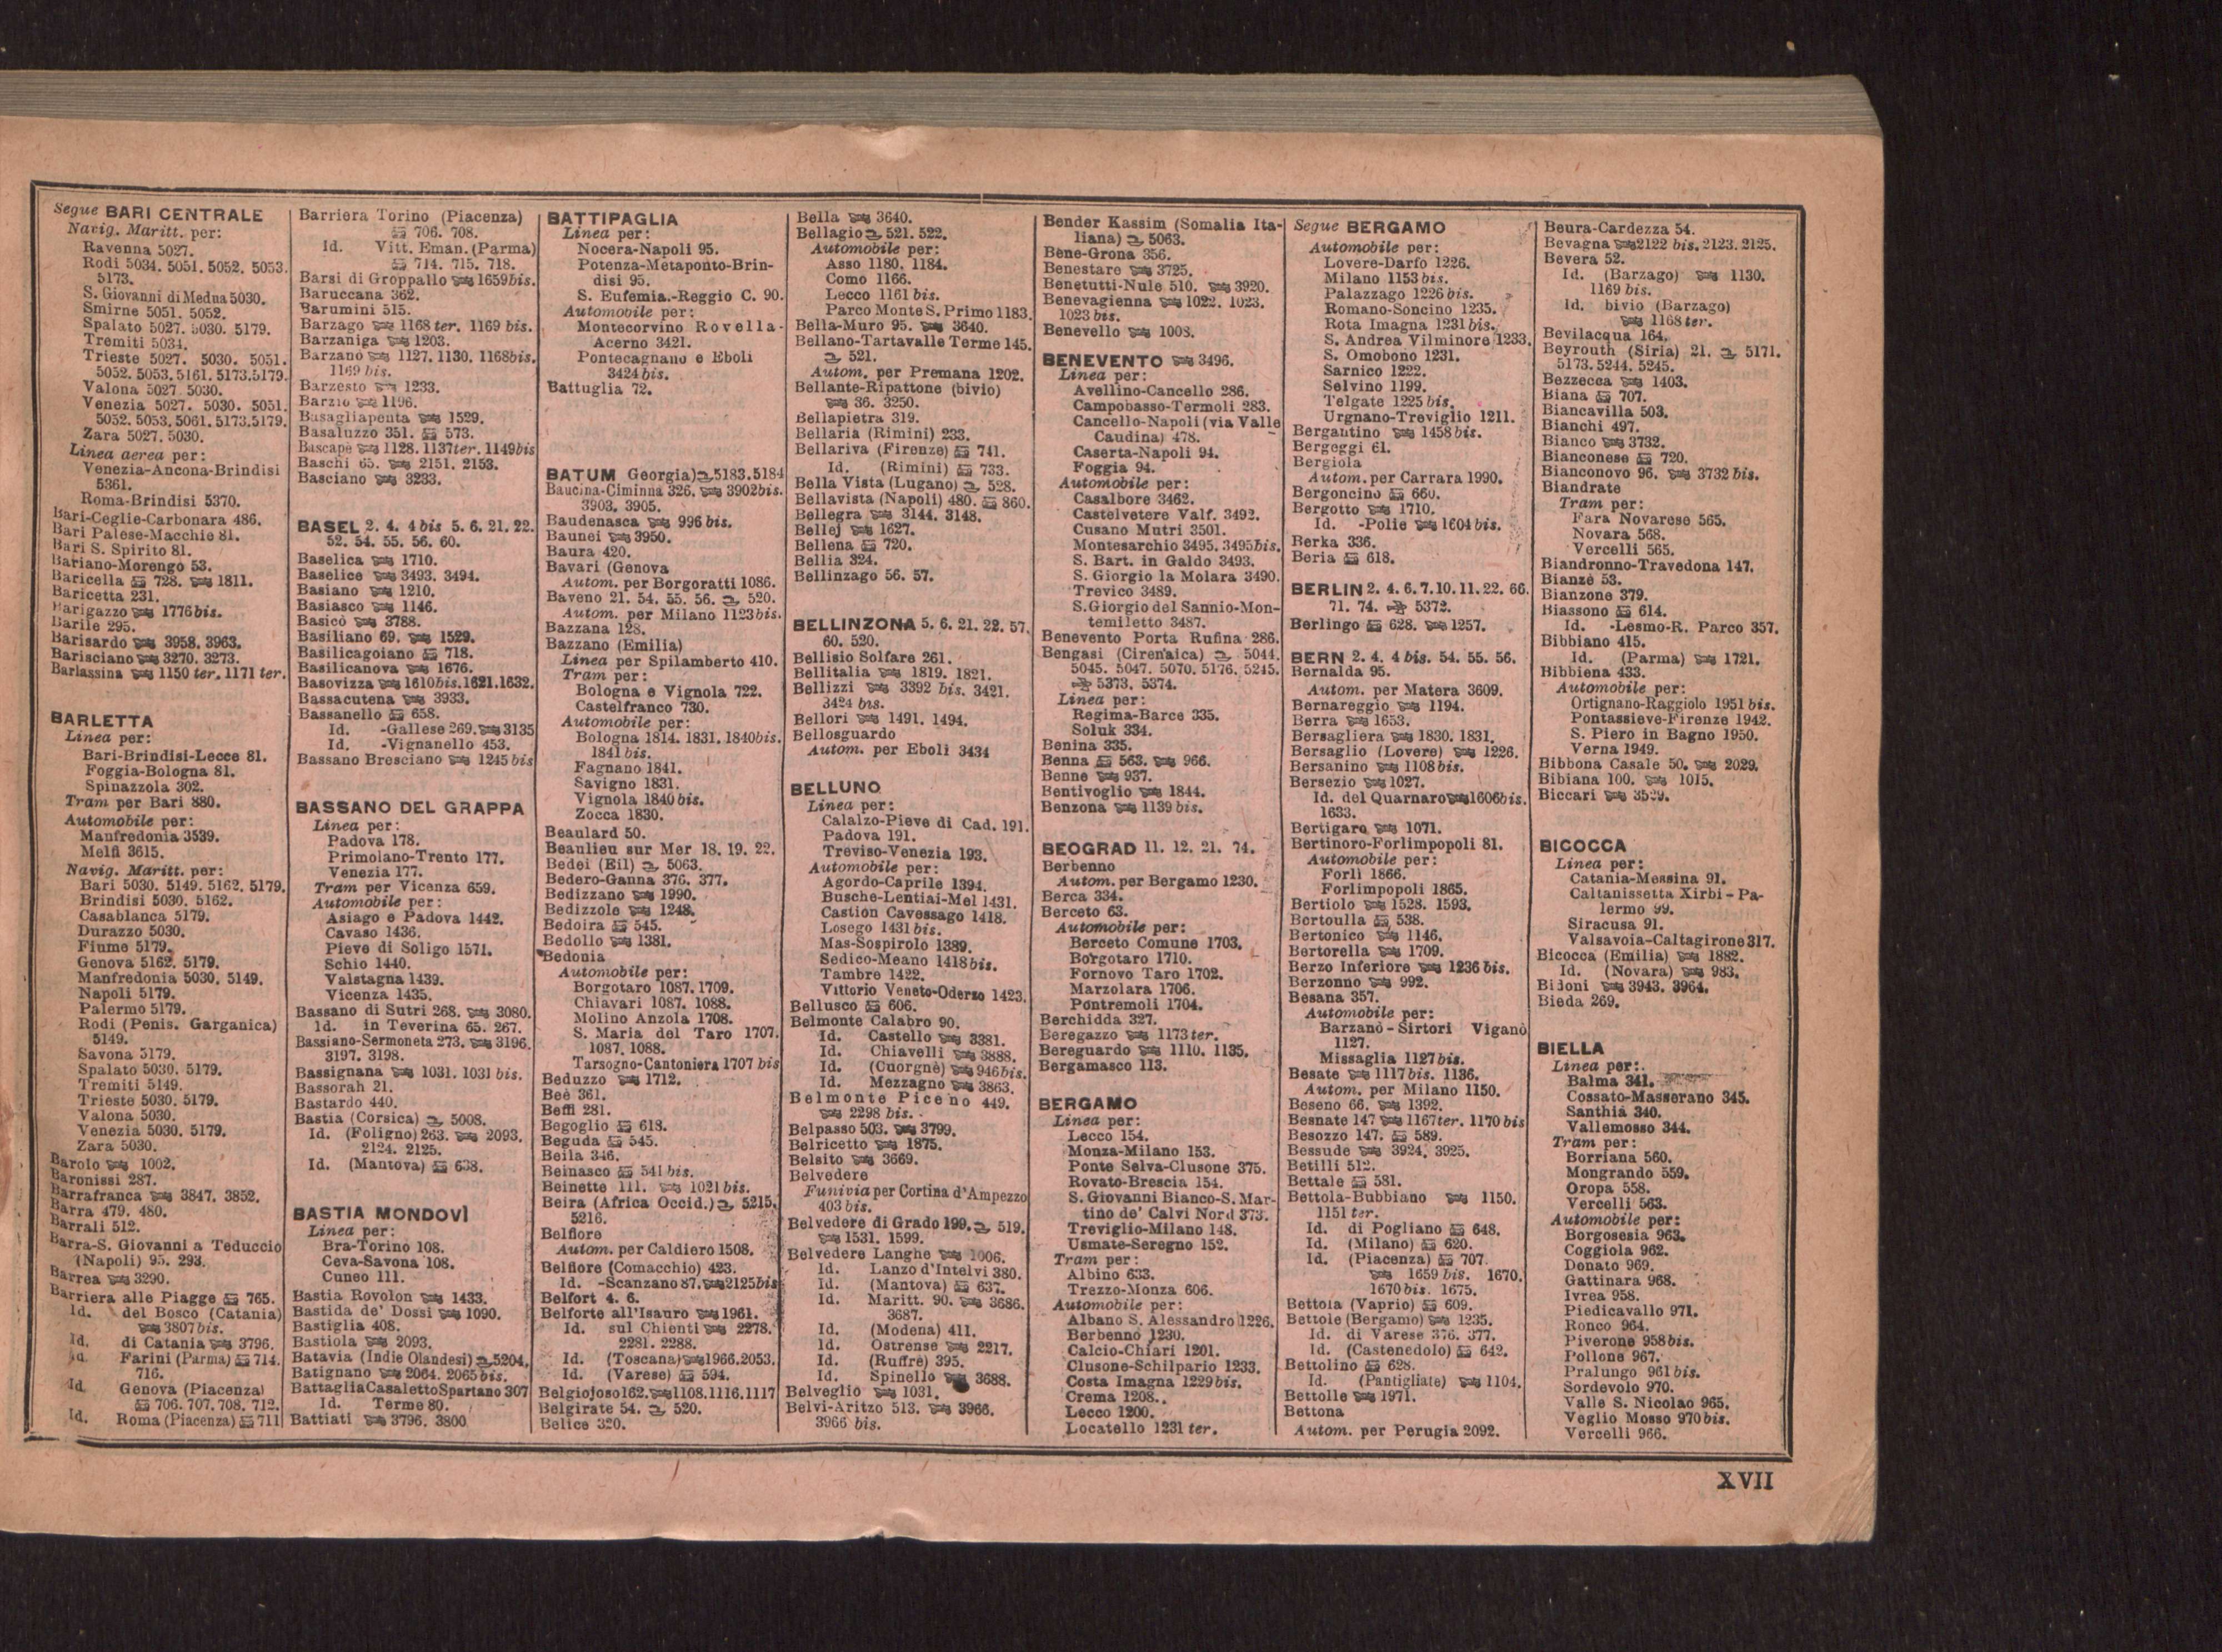 Segue BARI CENTRALE
Navig. Maritt. per:
Ravenna 5027.
Rodi 5034. 5051. 5052. 5053.
5173.
S. Giovanni di Medua 5030.
Smirne 5051. 5052.
Spalato 5027. 5030. 5179.
Tremiti 5034.
Trieste 5027. 5030. 5051.
5052. 5053. 5161. 5173. 5179.
Valona 5027 5030.
Venezia 5027. 5030. 5051.
5052. 5053. 5061. 5173. 5179.
Zara 5027. 5030.
Linea aerea per:
Venezia-Ancona-Brindisi
5361.
Roma-Brindisi 5370.
Bari-Ceglie-Carbonara 486.
Bari Palese-Macchie 81.
Bari S. Spirito 81.
Bariano-Morengo 53.
Baricella 728. 1811.
Baricetta 231.
Barigazzo 1776 bis.
Barile 295.
Barisardo 3958. 3963.
Barisciano 3270. 3273.
Barlassina 1150 ter. 1171 ter.
BARLETTA
Linea per:
Bari-Brindisi-Lecce 81.
Foggia-Bologna 81.
Spinazzola 302.
Tram per Bari 880.
Automobile per:
Manfredonia 3539.
Melfi 3615.
Navig. Maritt. per:
Bari 5030. 5149. 5162. 5179.
Brindisi 5030. 5162.
Casablanca 5179.
Durazzo 5030.
Fiume 5179.
Genova 5162. 5179.
Manfredonia 5030. 5149.
Napoli 5179.
Palermo 5179.
Rodi (Penis. Garganica)
5149.
Savona 5179.
Spalato 5030. 5179.
Tremiti 5149.
Trieste 5030. 5179.
Valona 5030.
Venezia 5030. 5179.
Zara 5030.
Barolo 1002.
Baronissi 287.
Barrafranca 3847. 3852.
Barra 479. 480.
Barrali 512.
Barra-S. Giovanni a Teduccio
(Napoli) 95. 293.
Barrea 3290.
Barriera alle Piagge 765.
Id. del Bosco (Catania)
3807 bis.
Id. di Catania 3796.
Id. Farini (Parma) 714.
716.
Id. Genova (Piacenza)
706. 707. 708. 712.
Id. Roma (Piacenza) 711
Barriera Torino (Piacenza)
706. 708.
Id. Vitt. Eman. (Parma)
714. 715. 718.
Barsi di Groppallo 1659 bis.
Baruccana 362.
Barumini 515.
Barzago 1168 ter. 1169 bis.
Barzaniga 1203.
Barzanò 1127. 1130. 1168 bis.
1169 bis.
Barzesto 1233.
Barzio 1196.
Basagliapenta 1529.
Basaluzzo 351. 573.
Bascapè 1128. 1137 ter. 1149 bis
Baschi 65. 2151. 2153.
Basciano 3233.
BASEL 2. 4. 4 bis 5. 6. 21. 22.
52. 54. 55. 56. 60.
Baselica 1710.
Baselice 3493. 3494.
Basiano 1210.
Basiasco 1146.
Basicò 3788.
Basiliano 69. 1529.
Basilicagoiano 718.
Basilicanova 1676.
Basovizza 1610 bis. 1621. 1632.
Bassacutena 3933.
Bassanello 658.
Id. -Gallese 269. 3135
Id. -Vignanello 453.
Bassano Bresciano 1245 bis
BASSANO DEL GRAPPA
Linea per:
Padova 178.
Primolano-Trento 177.
Venezia 177.
Tram per Vicenza 659.
Automobile per:
Asiago e Padova 1442.
Cavaso 1436.
Pieve di Soligo 1571.
Schio 1440.
Valstagna 1439.
Vicenza 1435.
Bassano di Sutri 268. 3080.
Id. in Teverina 65. 267.
Bassiano-Sermoneta 273. 3196.
3197. 3198.
Bassignana 1031. 1031 bis.
Bassorah 21.
Bastardo 440.
Bastia (Corsica) 5008.
Id. (Foligno) 263. 2093.
2124. 2125.
Id. (Mantova) 638.
BASTIA MONDOVÌ
Linea per:
Bra-Torino 108.
Ceva-Savona 108.
Cuneo 111.
Bastia Rovolon 1433.
Bastida de' Dossi 1090.
Bastiglia 408.
Bastiola 2093.
Batavia (Indie Olandesi) 5204.
Batignano 2064. 2065 bis.
Battaglia Casaletto Spartano 307
Id. Terme 80.
Battiati 3796. 3800
BATTIPAGLIA
Linea per:
Nocera-Napoli 95.
Potenza-Metaponto-Brin-
disi 95.
S. Eufemia.-Reggio C. 90.
Automobile per:
Montecorvino Rovella-
Acerno 3421.
Pontecagnano e Eboli
3424 bis.
Battuglia 72.
BATUM Georgia) 5183. 5184
Baucina-Ciminna 326. 3902 bis.
3903. 3905.
Baudenasca 996 bis.
Baunei 3950.
Baura 420.
Bavari (Genova
Autom. per Borgoratti 1086.
Baveno 21. 54. 55. 56. 520.
Autom. per Milano 1123 bis.
Bazzana 128.
Bazzano (Emilia)
Linea per Spilamberto 410.
Tram per:
Bologna e Vignola 722.
Castelfranco 730.
Automobile per:
Bologna 1814. 1831. 1840 bis.
1841 bis.
Fagnano 1841.
Savigno 1831.
Vignola 1840 bis.
Zocca 1830.
Beaulard 50.
Beaulieu sur Mer 18. 19. 22.
Bedei (Eil) 5063.
Bedero-Ganna 376. 377.
Bedizzano 1990.
Bedizzole 1248.
Bedoira 545.
Bedollo 1381.
Bedonia
Automobile per:
Borgotaro 1087. 1709.
Chiavari 1087. 1088.
Molino Anzola 1708.
S. Maria del Taro 1707.
1087. 1088.
Tarsogno-Cantoniera 1707 bis
Beduzzo 1712.
Beè 361.
Beffi 281.
Begoglio 618.
Beguda 545.
Beila 346.
Beinasco 541 bis.
Beinette 111. 1021 bis.
Beira (Africa Occid.) 5215.
5216.
Belfiore
Autom. per Caldiero 1508.
Belfiore (Comacchio) 423.
Id. -Scanzano 87. 2125 bis
Belfort 4. 6.
Belforte all'Isauro 1961.
Id. sul Chienti 2278.
2281. 2288.
Id. (Toscana) 1966. 2053.
Id. (Varese) 594.
Belgiojoso 162. 1108. 1116. 1117
Belgirate 54. 520.
Belice 320.
Bella 3640.
Bellagio 521. 522.
Automobile per:
Asso 1180. 1184.
Como 1166.
Lecco 1161 bis.
Parco Monte S. Primo 1183.
Bella-Muro 95. 3640.
Bellano-Tartavalle Terme 145.
521.
Autom. per Premana 1202.
Bellante-Ripattone (bivio)
36. 3250.
Bellapietra 319.
Bellaria (Rimini) 233.
Bellariva (Firenze) 741.
Id. (Rimini) 733.
Bella Vista (Lugano) 528.
Bellavista (Napoli) 480. 860.
Bellegra 3144. 3148.
Bellej 1627.
Bellena 720.
Bellia 324.
Bellinzago 56. 57.
BELLINZONA 5. 6. 21. 22. 57.
60. 520.
Bellisio Solfare 261.
Bellitalia 1819. 1821.
Bellizzi 3392 bis. 3421.
3424 bis.
Bellori 1491. 1494.
Bellosguardo
Autom. per Eboli 3434
BELLUNO
Linea per:
Calalzo-Pieve di Cad. 191.
Padova 191.
Treviso-Venezia 193.
Automobile per:
Agordo-Caprile 1394.
Busche-Lentiai-Mel 1431.
Castion Cavessago 1418.
Losego 1431 bis.
Mas-Sospirolo 1389.
Sedico-Meano 1418 bis.
Tambre 1422.
Vittorio Veneto-Oderzo 1423.
Bellusco 606.
Belmonte Calabro 90.
Id. Castello 3381.
Id. Chiavelli 3888.
Id. (Cuorgnè) 946 bis.
Id. Mezzagno 3863.
Belmonte Piceno 449.
2298 bis.
Belpasso 503. 3799.
Belricetto 1875.
Belsito 3669.
Belvedere
Funivia per Cortina d'Ampezzo
403 bis.
Belvedere di Grado 199. 519.
1531. 1599.
Belvedere Langhe 1006.
Id. Lanzo d'Intelvi 380.
Id. (Mantova) 637.
Id. Maritt. 90. 3686.
3687.
Id. (Modena) 411.
Id. Ostrense 2217.
Id. (Ruffrè) 395.
Id. Spinello 3688.
Belveglio 1031.
Belvi-Aritzo 513. 3966.
3966 bis.
Bender Kassim (Somalia Ita-
liana) 5063.
Bène-Grona 356.
Benestare 3725.
Benetutti-Nule 510. 3920.
Benevagienna 1022. 1023.
1023 bis.
Benevello 1008.
BENEVENTO 3496.
Linea per:
Avellino-Cancello 286.
Campobasso-Termoli 283.
Cancello-Napoli (via Valle
Caudina) 478.
Caserta-Napoli 94.
Foggia 94.
Automobile per:
Casalbore 3462.
Castelvetere Valf. 3492.
Cusano Mutri 3501.
Montesarchio 3495. 3495 bis.
S. Bart. in Galdo 3493.
S. Giorgio la Molara 3490.
Trevico 3489.
S. Giorgio del Sannio-Mon-
temiletto 3487.
Benevento Porta Rufina 286.
Bengasi (Cirenaica) 5044.
5045. 5047. 5070. 5176. 5245.
5373. 5374.
Linea per:
Regima-Barce 335.
Soluk 334.
Benina 335.
Benna 563. 966.
Benne 937.
Bentivoglio 1844.
Benzona 1139 bis.
BEOGRAD 11. 12. 21. 74.
Berbenno
Autom. per Bergamo 1230.
Berca 334.
Berceto 63.
Automobile per:
Berceto Comune 1703.
Borgotaro 1710.
Fornovo Taro 1702.
Marzolara 1706.
Pontremoli 1704.
Berchidda 327.
Beregazzo 1173 ter.
Bereguardo 1110. 1135.
Bergamasco 113.
BERGAMO
Linea per:
Lecco 154.
Monza-Milano 153.
Ponte Selva-Clusone 375.
Rovato-Brescia 154.
S. Giovanni Bianco-S. Mar-
tino de' Calvi Nord 373.
Treviglio-Milano 148.
Usmate-Seregno 152.
Tram per:
Albino 633.
Trezzo-Monza 606.
Automobile per:
Albano S. Alessandro 1226.
Berbenno 1230.
Calcio-Chiari 1201.
Clusone-Schilpario 1233.
Costa Imagna 1229 bis.
Crema 1208.
Lecco 1200.
Locatello 1231 ter.
Segue BERGAMO
Automobile per:
Lovere-Darfo 1226.
Milano 1153 bis.
Palazzago 1226 bis.
Romano-Soncino 1235.
Rota Imagna 1231 bis.
S. Andrea Vilminore 1233.
S. Omobono 1231.
Sarnico 1222.
Selvino 1199.
Telgate 1225 bis.
Urgnano-Treviglio 1211.
Bergantino 1458 bis.
Bergeggi 61.
Bergiola
Autom. per Carrara 1990.
Bergoncino 660.
Bergotto 1710.
Id. -Polie 1604 bis.
Berka 336.
Beria 618.
BERLIN 2. 4. 6. 7. 10. 11. 22. 66.
71. 74. 5372.
Berlingo 628. 1257.
BERN 2. 4. 4 bis. 54. 55. 56.
Bernalda 95.
Autom. per Matera 3609.
Bernareggio 1194.
Berra 1653.
Bersagliera 1830. 1831.
Bersaglio (Lovere) 1226.
Bersanino 1108 bis.
Bersezio 1027.
Id. del Quarnaro 1606 bis.
1633.
Bertigaro 1071.
Bertinoro-Forlimpopoli 81.
Automobile per:
Forlì 1866.
Forlimpopoli 1865.
Bertiolo 1528. 1593.
Bertoulla 538.
Bertonico 1146.
Bertorella 1709.
Berzo Inferiore 1236 bis.
Berzonno 992.
Besana 357.
Automobile per:
Barzanò-Sirtori Viganò
1127.
Missaglia 1127 bis.
Besate 1117 bis. 1136.
Autom. per Milano 1150.
Beseno 66. 1392.
Besnate 147 1167 ter. 1170 bis
Besozzo 147. 589.
Bessude 3924. 3925.
Betilli 512.
Bettale 581.
Bettola-Bubbiano 1150.
1151 ter.
Id. di Pogliano 648.
Id. (Milano) 620.
Id. (Piacenza) 707.
1659 bis. 1670.
1670 bis. 1675.
Bettola (Vaprio) 609.
Bettole (Bergamo) 1235.
Id. di Varese 376. 377.
Id. (Castenedolo) 642.
Bettolino 628.
Id. (Pantigliate) 1104.
Bettolle 1971.
Bettona
Autom. per Perugia 2092.
Beura-Cardezza 54.
Bevagna 2122 bis. 2123. 2125.
Bevera 52.
Id. (Barzago) 1130.
1169 bis.
Id. bivio (Barzago)
1168 ter.
Bevilacqua 164.
Beyrouth (Siria) 21. 5171.
5173. 5244. 5245.
Bezzecca 1403.
Biana 707.
Biancavilla 503.
Bianchi 497.
Bianco 3732.
Bianconese 720.
Bianconovo 96. 3732 bis.
Biandrate
Tram per:
Fara Novarese 565.
Novara 568.
Vercelli 565.
Biandronno-Travedona 147.
Bianzè 53.
Bianzone 379.
Biassono 614.
Id. -Lesmo-R. Parco 357.
Bibbiano 415.
Id. (Parma) 1721.
Bibbiena 433.
Automobile per:
Ortignano-Raggiolo 1951 bis.
Pontassieve-Firenze 1942.
S. Piero in Bagno 1950.
Verna 1949.
Bibbona Casale 50. 2029.
Bibiana 100. 1015.
Biccari 3529.
BICOCCA
Linea per:
Catania-Messina 91.
Caltanissetta Xirbi-Pa-
lermo 99.
Siracusa 91.
Valsavoia-Caltagirone 317.
Bicocca (Emilia) 1882.
Id. (Novara) 983.
Bidoni 3943. 3964.
Bieda 269.
BIELLA
Linea per:
Balma 341.
Cossato-Masserano 345.
Santhià 340.
Vallemosso 344.
Tram per:
Borriana 560.
Mongrando 559.
Oropa 558.
Vercelli 563.
Automobile per:
Borgosesia 963.
Coggiola 962.
Donato 969.
Gattinara 968.
Ivrea 958.
Piedicavallo 971.
Ronco 964.
Piverone 958 bis.
Pollone 967.
Pralungo 961 bis.
Sordevolo 970.
Valle S. Nicolao 965.
Veglio Mosso 970 bis.
Vercelli 966.
XVII